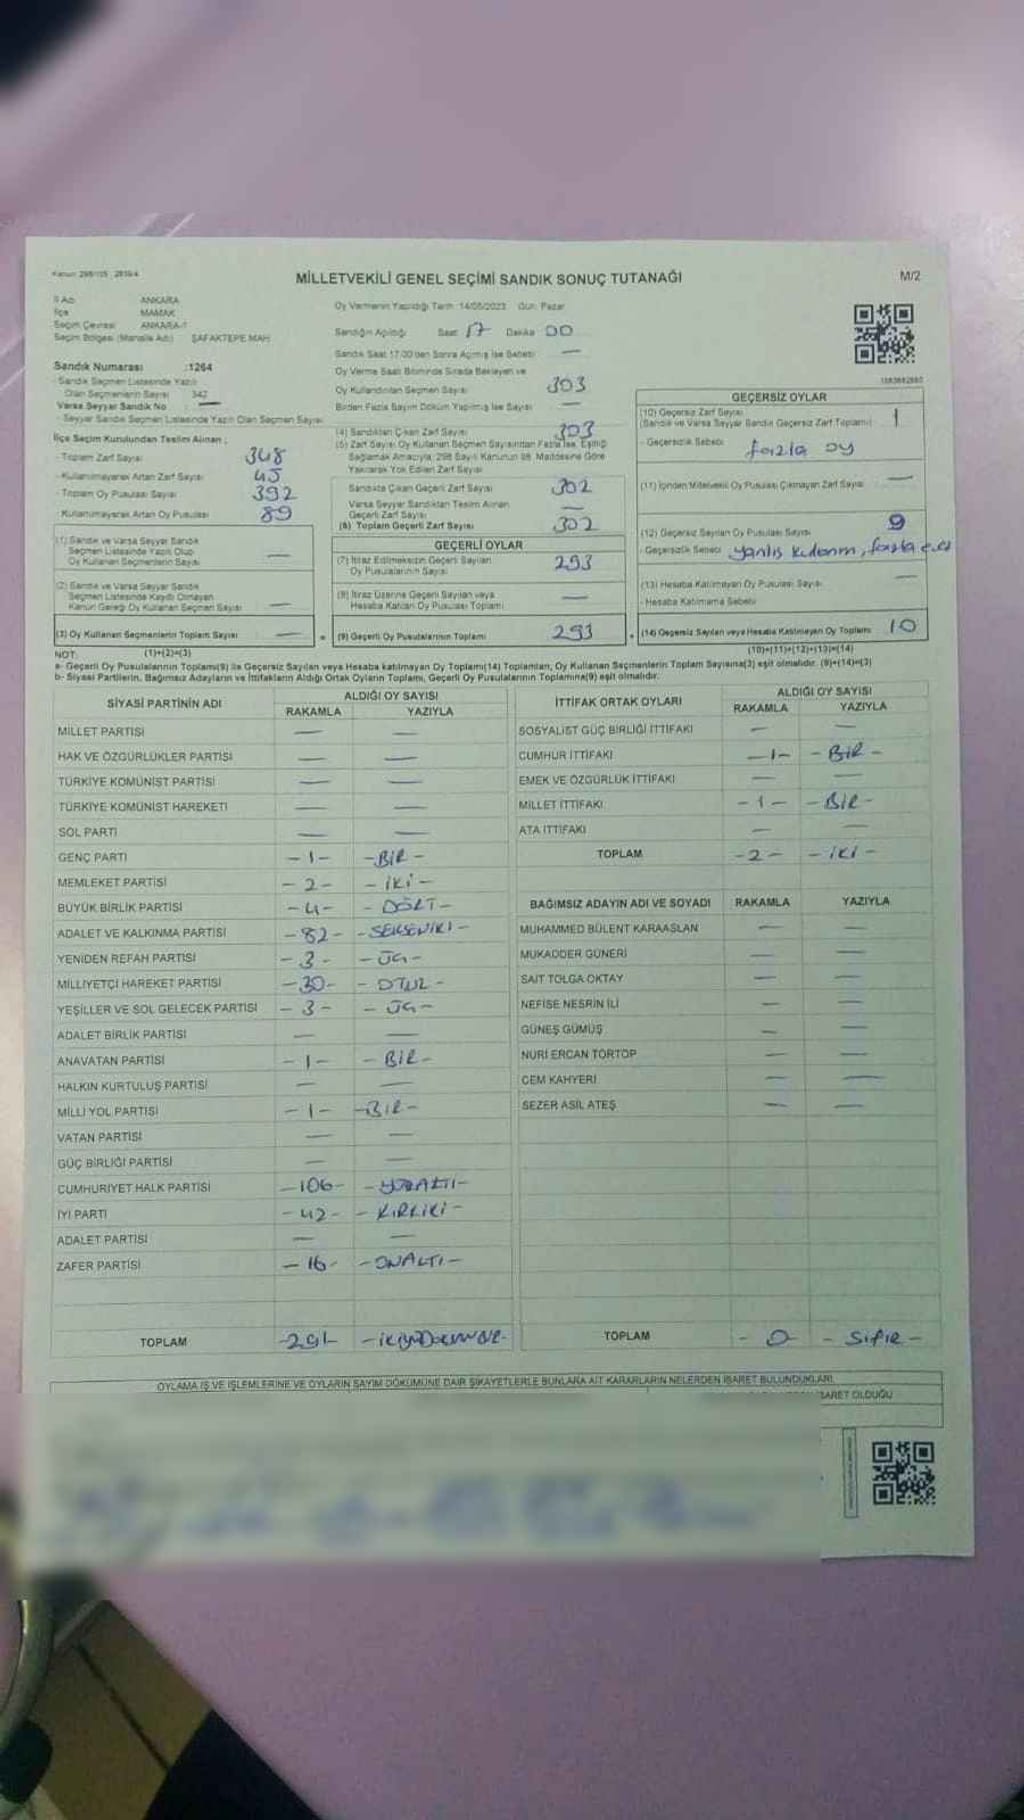 Kanun: 298/105 , 2839/4
MİLLETVEKİLİ GENEL SEÇİMİ SANDIK SONUÇ TUTANAĞI
M/2
İl Adı ANKARA
İlçe MAMAK
Seçim Çevresi ANKARA-1
Seçim Bölgesi (Mahalle Adı) ŞAFAKTEPE MAH
Sandık Numarası :1264
- Sandık Seçmen Listesinde Yazılı
Olan Seçmenlerin Sayısı 342
Varsa Seyyar Sandık No : —
- Seyyar Sandık Seçmen Listesinde Yazılı Olan Seçmen Sayısı
İlçe Seçim Kurulundan Teslim Alınan ;
- Toplam Zarf Sayısı 348
- Kullanılmayarak Artan Zarf Sayısı 45
- Toplam Oy Pusulası Sayısı 392
- Kullanılmayarak Artan Oy Pusulası 89
(1) Sandık ve Varsa Seyyar Sandık
Seçmen Listesinde Yazılı Olup
Oy Kullanan Seçmenlerin Sayısı —
(2) Sandık ve Varsa Seyyar Sandık
Seçmen Listesinde Kaydı Olmayan
Kanun Gereği Oy Kullanan Seçmen Sayısı —
(3) Oy Kullanan Seçmenlerin Toplam Sayısı —
(1)+(2)=(3)
Oy Vermenin Yapıldığı Tarih :14/05/2023 Gün: Pazar
Sandığın Açıldığı Saat 17 Dakika 00
Sandık Saat 17:00'den Sonra Açılmış İse Sebebi —
Oy Verme Saati Bitiminde Sırada Bekleyen ve
Oy Kullandırılan Seçmen Sayısı 303
Birden Fazla Sayım Döküm Yapılmış İse Sayısı —
(4) Sandıktan Çıkan Zarf Sayısı 303
(5) Zarf Sayısı Oy Kullanan Seçmen Sayısından Fazla İse, Eşitliği
Sağlamak Amacıyla, 298 Sayılı Kanunun 98. Maddesine Göre
Yakılarak Yok Edilen Zarf Sayısı
Sandıkta Çıkan Geçerli Zarf Sayısı 302
Varsa Seyyar Sandıktan Teslim Alınan
Geçerli Zarf Sayısı —
(6) Toplam Geçerli Zarf Sayısı 302
GEÇERLİ OYLAR
(7) İtiraz Edilmeksizin Geçerli Sayılan
Oy Pusulalarının Sayısı 293
(8) İtiraz Üzerine Geçerli Sayılan veya
Hesaba Katılan Oy Pusulası Toplamı —
(9) Geçerli Oy Pusulalarının Toplamı 293
GEÇERSİZ OYLAR
(10) Geçersiz Zarf Sayısı
(Sandık ve Varsa Seyyar Sandık Geçersiz Zarf Toplamı) 1
- Geçersizlik Sebebi fazla oy
(11) İçinden Milletvekili Oy Pusulası Çıkmayan Zarf Sayısı —
(12) Geçersiz Sayılan Oy Pusulası Sayısı 9
- Geçersizlik Sebebi yanlış kullanım, fazla
(13) Hesaba Katılmayan Oy Pusulası Sayısı —
- Hesaba Katılmama Sebebi
(14) Geçersiz Sayılan veya Hesaba Katılmayan Oy Toplamı 10
(10)+(11)+(12)+(13)=(14)
NOT:
a- Geçerli Oy Pusulalarının Toplamı(9) ile Geçersiz Sayılan veya Hesaba katılmayan Oy Toplamı(14) Toplamları, Oy Kullanan Seçmenlerin Toplam Sayısına(3) eşit olmalıdır. (9)+(14)=(3)
b- Siyasi Partilerin, Bağımsız Adayların ve İttifakların Aldığı Oy Ortak Oyların Toplamı, Geçerli Oy Pusulalarının Toplamına(9) eşit olmalıdır.
SİYASİ PARTİNİN ADI
ALDIĞI OY SAYISI
RAKAMLA YAZIYLA
MİLLET PARTİSİ — —
HAK VE ÖZGÜRLÜKLER PARTİSİ — —
TÜRKİYE KOMÜNİST PARTİSİ — —
TÜRKİYE KOMÜNİST HAREKETİ — —
SOL PARTİ — —
GENÇ PARTİ -1- -BİR-
MEMLEKET PARTİSİ -2- -İKİ-
BÜYÜK BİRLİK PARTİSİ -4- -DÖRT-
ADALET VE KALKINMA PARTİSİ -82- -SEKSENİKİ-
YENİDEN REFAH PARTİSİ -3- -ÜÇ-
MİLLİYETÇİ HAREKET PARTİSİ -30- -OTUZ-
YEŞİLLER VE SOL GELECEK PARTİSİ -3- -ÜÇ-
ADALET BİRLİK PARTİSİ — —
ANAVATAN PARTİSİ -1- -BİR-
HALKIN KURTULUŞ PARTİSİ — —
MİLLİ YOL PARTİSİ -1- -BİR-
VATAN PARTİSİ — —
GÜÇ BİRLİĞİ PARTİSİ — —
CUMHURİYET HALK PARTİSİ -106- -YÜZALTI-
İYİ PARTİ -42- -KIRKİKİ-
ADALET PARTİSİ — —
ZAFER PARTİSİ -16- -ONALTI-
TOPLAM -291-
İTTİFAK ORTAK OYLARI
ALDIĞI OY SAYISI
RAKAMLA YAZIYLA
SOSYALİST GÜÇ BİRLİĞİ İTTİFAKI — —
CUMHUR İTTİFAKI -1- -BİR-
EMEK VE ÖZGÜRLÜK İTTİFAKI — —
MİLLET İTTİFAKI -1- -BİR-
ATA İTTİFAKI — —
TOPLAM -2- -İKİ-
BAĞIMSIZ ADAYIN ADI VE SOYADI RAKAMLA YAZIYLA
MUHAMMED BÜLENT KARAASLAN — —
MUKADDER GÜNERİ — —
SAİT TOLGA OKTAY — —
NEFİSE NESRİN İLİ — —
GÜNEŞ GÜMÜŞ — —
NURİ ERCAN TORTOP — —
CEM KAHYERİ — —
SEZER ASİL ATEŞ — —
TOPLAM - 0 - - SIFIR -
OYLAMA İŞ VE İŞLEMLERİNE VE OYLARIN SAYIM DÖKÜMÜNE DAİR ŞİKAYETLERLE BUNLARA AİT KARARLARIN NELERDEN İBARET BULUNDUKLARI
OLDUĞU